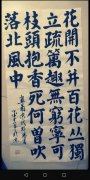 花開不并百花丛獨
立疏篱趣無窮寧可
枝頭抱香死何曾吹
落北風中